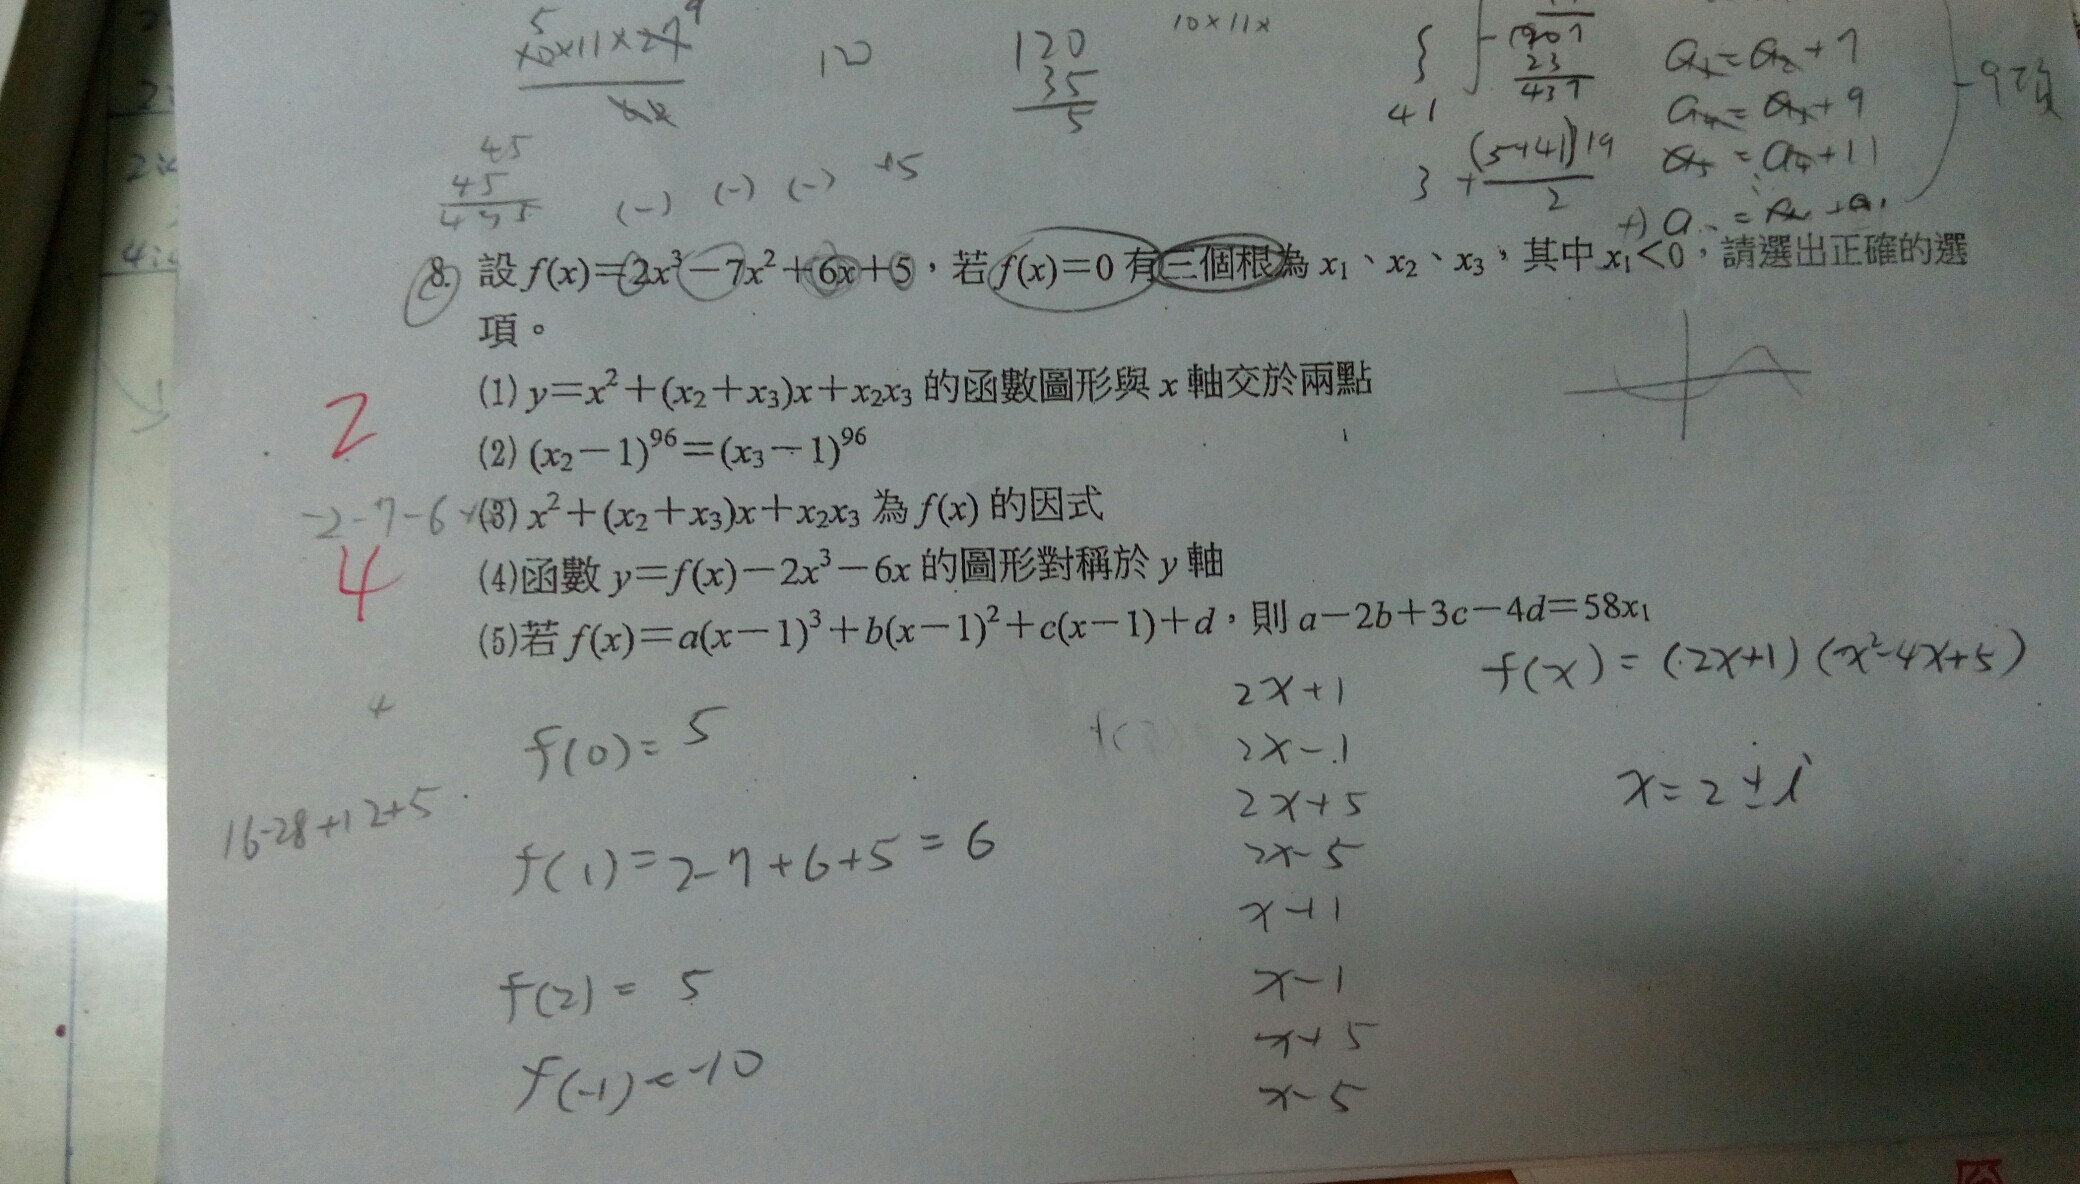 5 9
10×11×27
120
120
35
5
10×11×
23
437
41
(5+41)19
2
a₃=a₂+7
a₄=a₃+9
a₅=a₄+11
-9項
45
45
(-) (-) (-) +5
8. 設 f(x)=2x³-7x²+6x+5，若 f(x)=0 有三個根為 x₁、x₂、x₃，其中 x₁<0，請選出正確的選
項。
(1) y=x²+(x₂+x₃)x+x₂x₃ 的函數圖形與 x 軸交於兩點
2
(2) (x₂-1)⁹⁶=(x₃-1)⁹⁶
-2-7-6
(3) x²+(x₂+x₃)x+x₂x₃ 為 f(x) 的因式
4
(4)函數 y=f(x)-2x³-6x 的圖形對稱於 y 軸
(5)若 f(x)=a(x-1)³+b(x-1)²+c(x-1)+d，則 a-2b+3c-4d=58x₁
f(x)=(2x+1)(x²-4x+5)
x=2±i
4
f(0)=5
16-28+12+5
f(1)=2-7+6+5=6
f(2)=5
f(-1)=-10
2x+1
2x-1
2x+5
2x-5
x+1
x-1
x+5
x-5